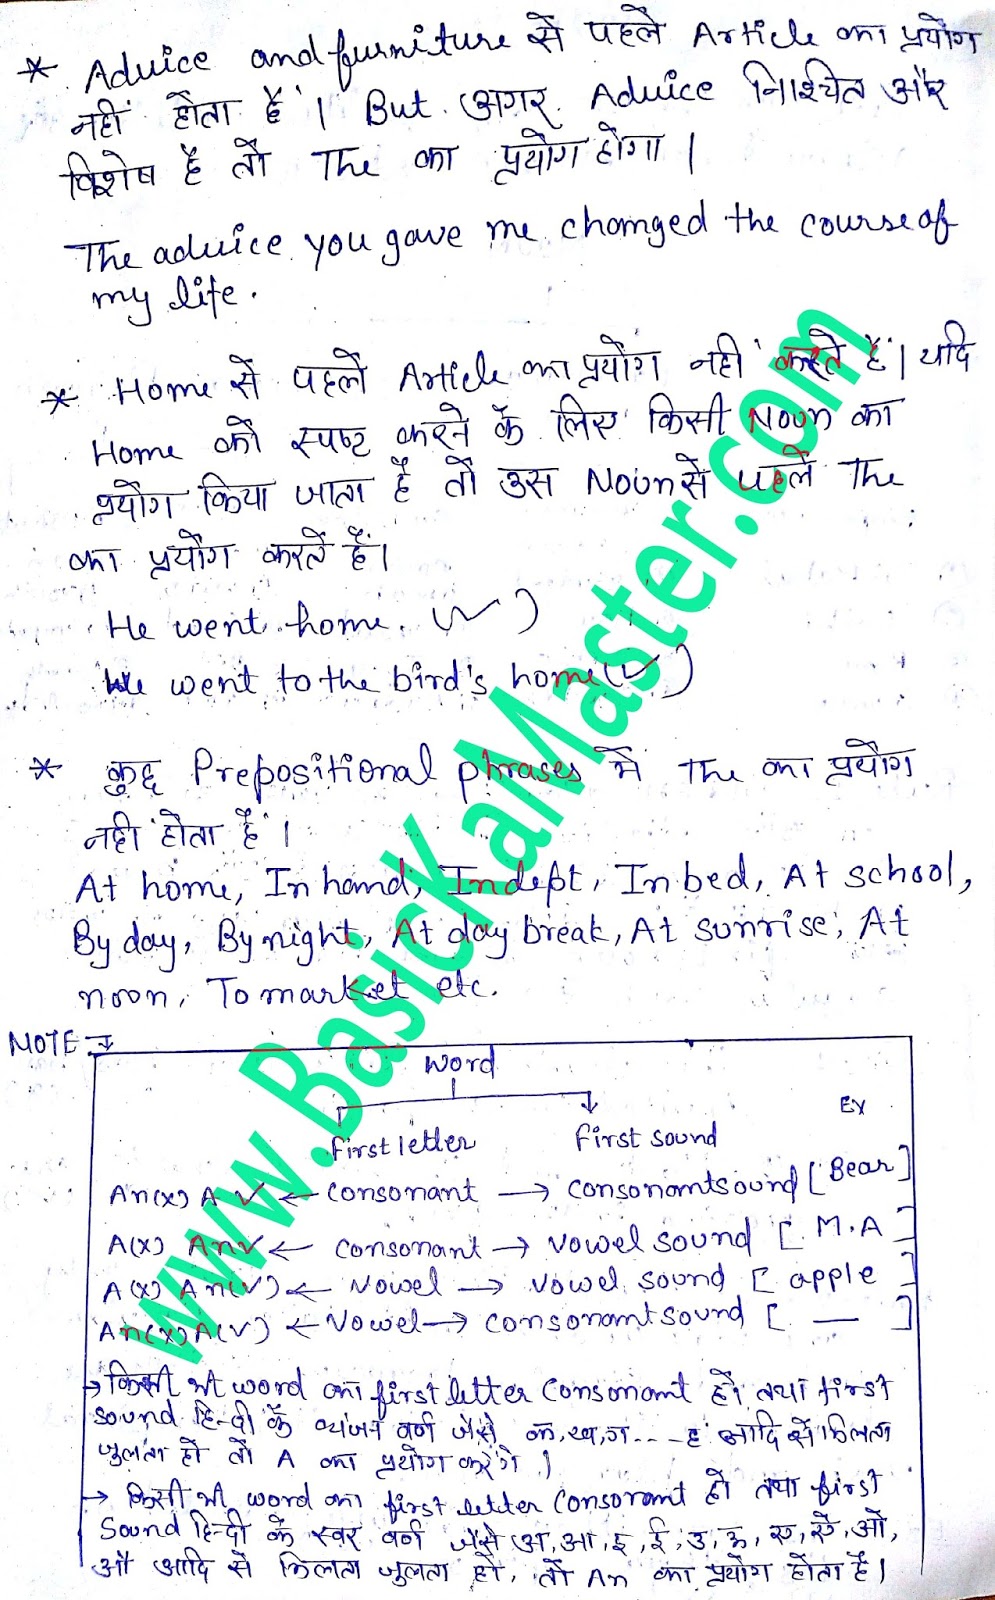 * Advice and furniture से पहले Article का प्रयोग
नहीं होता है । But अगर Advice निश्चित और
विशेष है तो The का प्रयोग होगा ।
The advice you gave me changed the course of
my life.
* Home से पहले Article का प्रयोग नहीं करते हैं । यदि
Home को स्पष्ट करने के लिए किसी Noun का
प्रयोग किया जाता है तो उस Noun से पहले The
का प्रयोग करते हैं।
He went home. (✓)
We went to the bird's home (✓)
* कुछ Prepositional phrases में The का प्रयोग
नहीं होता है ।
At home, In hand, In dept, In bed, At school,
By day, By night, At day break, At sunrise, At
noon, To market etc.
NOTE:→
Word
Ex
First letter First sound
An(x) A ✓ ← Consonant → Consonant sound [Bear]
A(x) An ✓ ← Consonant → Vowel sound [M.A]
A(x) An(✓) ← Vowel → Vowel sound [apple]
An(x) A(✓) ← Vowel → Consonant sound [ — ]
→ किसी भी word का first letter Consonant हो तथा first
sound हिन्दी के व्यंजन वर्ण जैसे क, ख, ग ---- ह आदि से मिलता
जुलता हो तो A का प्रयोग करेंगे ।
→ किसी भी word का first letter Consonant हो तथा first
Sound हिन्दी के स्वर वर्ण जैसे अ, आ, इ, ई, उ, ऊ, ए, ऐ, ओ,
औ आदि से मिलता जुलता हो, तो An का प्रयोग होता है।
www.BasicKaMaster.com